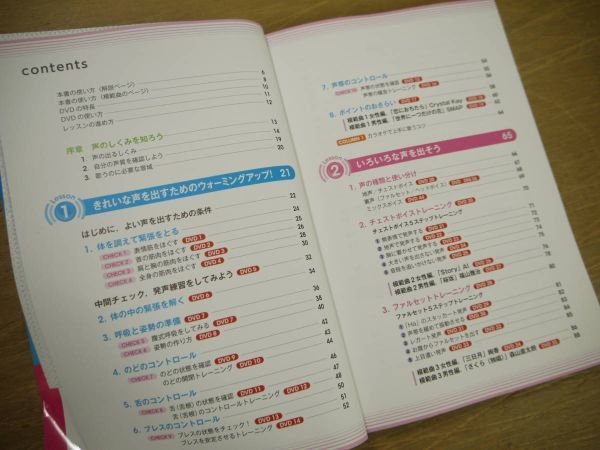 contents
本書の使い方（解説ページ） 6
本書の使い方（模範曲のページ） 8
DVDの特長 10
DVDの使い方 11
レッスンの進め方 12
序章 声のしくみを知ろう 13
1. 声の出るしくみ 14
2. 自分の声質を確認しよう 19
3. 歌うのに必要な音域 20
Lesson 1 きれいな声を出すためのウォーミングアップ! 21
はじめに，よい声を出すための条件 22
1. 体を調えて緊張をとる 24
CHECK 1 表情筋をほぐす DVD 1 25
CHECK 2 首の筋肉をほぐす DVD 2 26
CHECK 3 肩と腕の筋肉をほぐす DVD 3 28
CHECK 4 全身の筋肉をほぐす DVD 4 30
中間チェック，発声練習をしてみよう DVD 5 34
2. 体の中の緊張を解く DVD 6
3. 呼吸と姿勢の準備 DVD 7
CHECK 5 腹式呼吸をしてみる DVD 8
CHECK 6 姿勢の作り方
4. のどのコントロール
CHECK 7 のどの状態を確認 DVD 9
のどの開閉トレーニング DVD 10
5. 舌のコントロール 47
CHECK 8 舌（舌根）の状態を確認 DVD 11 48
舌（舌根）のコントロールトレーニング DVD 12 50
6. ブレスのコントロール 51
CHECK 9 ブレスの状態をチェック！ DVD 13 52
ブレスを安定させるトレーニング DVD 14
7. 声帯のコントロール 54
CHECK 10 声帯の状態を確認 DVD 15
声帯の強化トレーニング DVD 16
8. ポイントのおさらい DVD 17
模範曲1 女性編，「恋におちたら」Crystal Kay DVD 18
模範曲1 男性編，「世界に一つだけの花」SMAP DVD 19
COLUMN 1 カラオケで上手に歌うコツ 64
Lesson 2 いろいろな声を出そう 65
1. 声の種類と使い分け
地声／チェストボイス
裏声（ファルセット／ヘッドボイス）
ミックスボイス
2. チェストボイストレーニング
チェストボイス5ステップトレーニング
模範曲2 女性編，「Story」AI
模範曲2 男性編，「桜坂」福山雅治
3. ファルセットトレーニング
ファルセット5ステップトレーニング
模範曲3 女性編，「三日月」絢香
模範曲3 男性編，「さくら（独唱）」森山直太朗